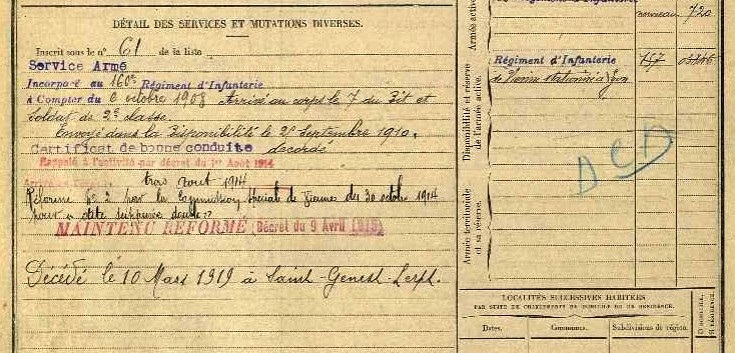 DÉTAIL DES SERVICES ET MUTATIONS DIVERSES.
Inscrit sous le n° 61 de la liste
Service Armé
Incorporé au 160e Régiment d'Infanterie
à Compter du 6 octobre 1908 Arrivé au corps le 7 du dit et
soldat de 2e classe.
Envoyé dans la disponibilité le 25 septembre 1910.
Certificat de bonne conduite accordé
Rappelé à l'activité par décret du 1er Août 1914
trois août 1914
Réforme n° 2 par la Commission spéciale de du 30 octobre 1914
pour
MAINTENU RÉFORMÉ (Décret du 9 Avril 1915)
Décédé le 10 Mars 1919 à Saint-Genest-Lerpt.
Armée active.
Régiment d'Infanterie
nouveau 720
Disponibilité et réserve de l'armée active.
Régiment d'Infanterie
de Vienne stationné à Lyon
157
Armée territoriale et sa réserve.
DCD
LOCALITÉS SUCCESSIVES HABITÉES
PAR SUITE DE CHANGEMENTS DE DOMICILE OU DE RÉSIDENCE.
Dates.
Communes.
Subdivisions de région.
D DOMICILE,
R RÉSIDENCE